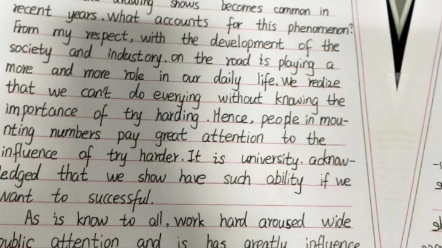 drawing shows becomes common in
recent years. what accounts for this phenomenon?
From my respect, with the development of the
society and industory. on the road is playing a
more and more role in our daily life. We realize
that we can't do everying without knowing the
importance of try harding. Hence, people in mou-
nting numbers pay great attention to the
influence of try harder. It is university. acknow-
ledged that we show have such ability if we
want to successful.
As is know to all, work hard aroused wide
public attention and is has greatly influence